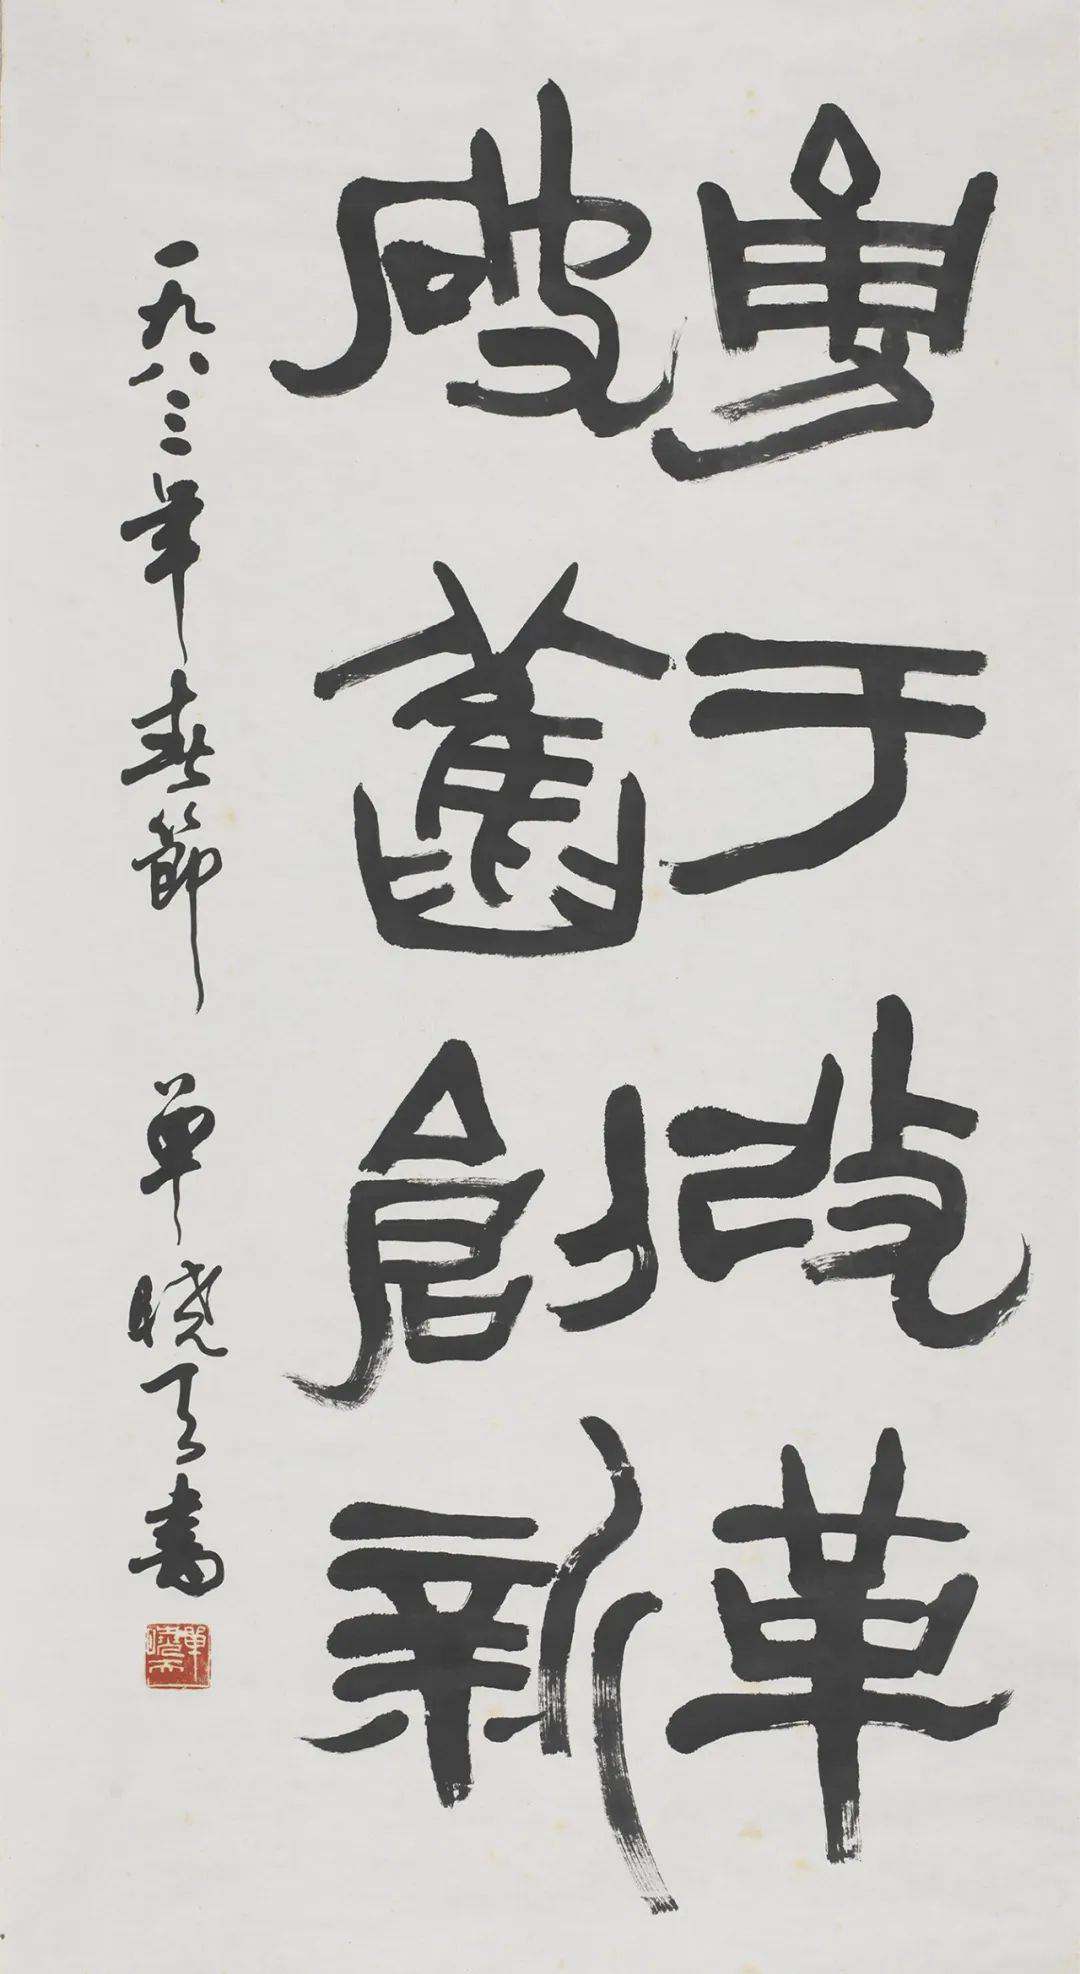 勇于改革
破舊創新
一九八三年春節 单晓天書
單曉天